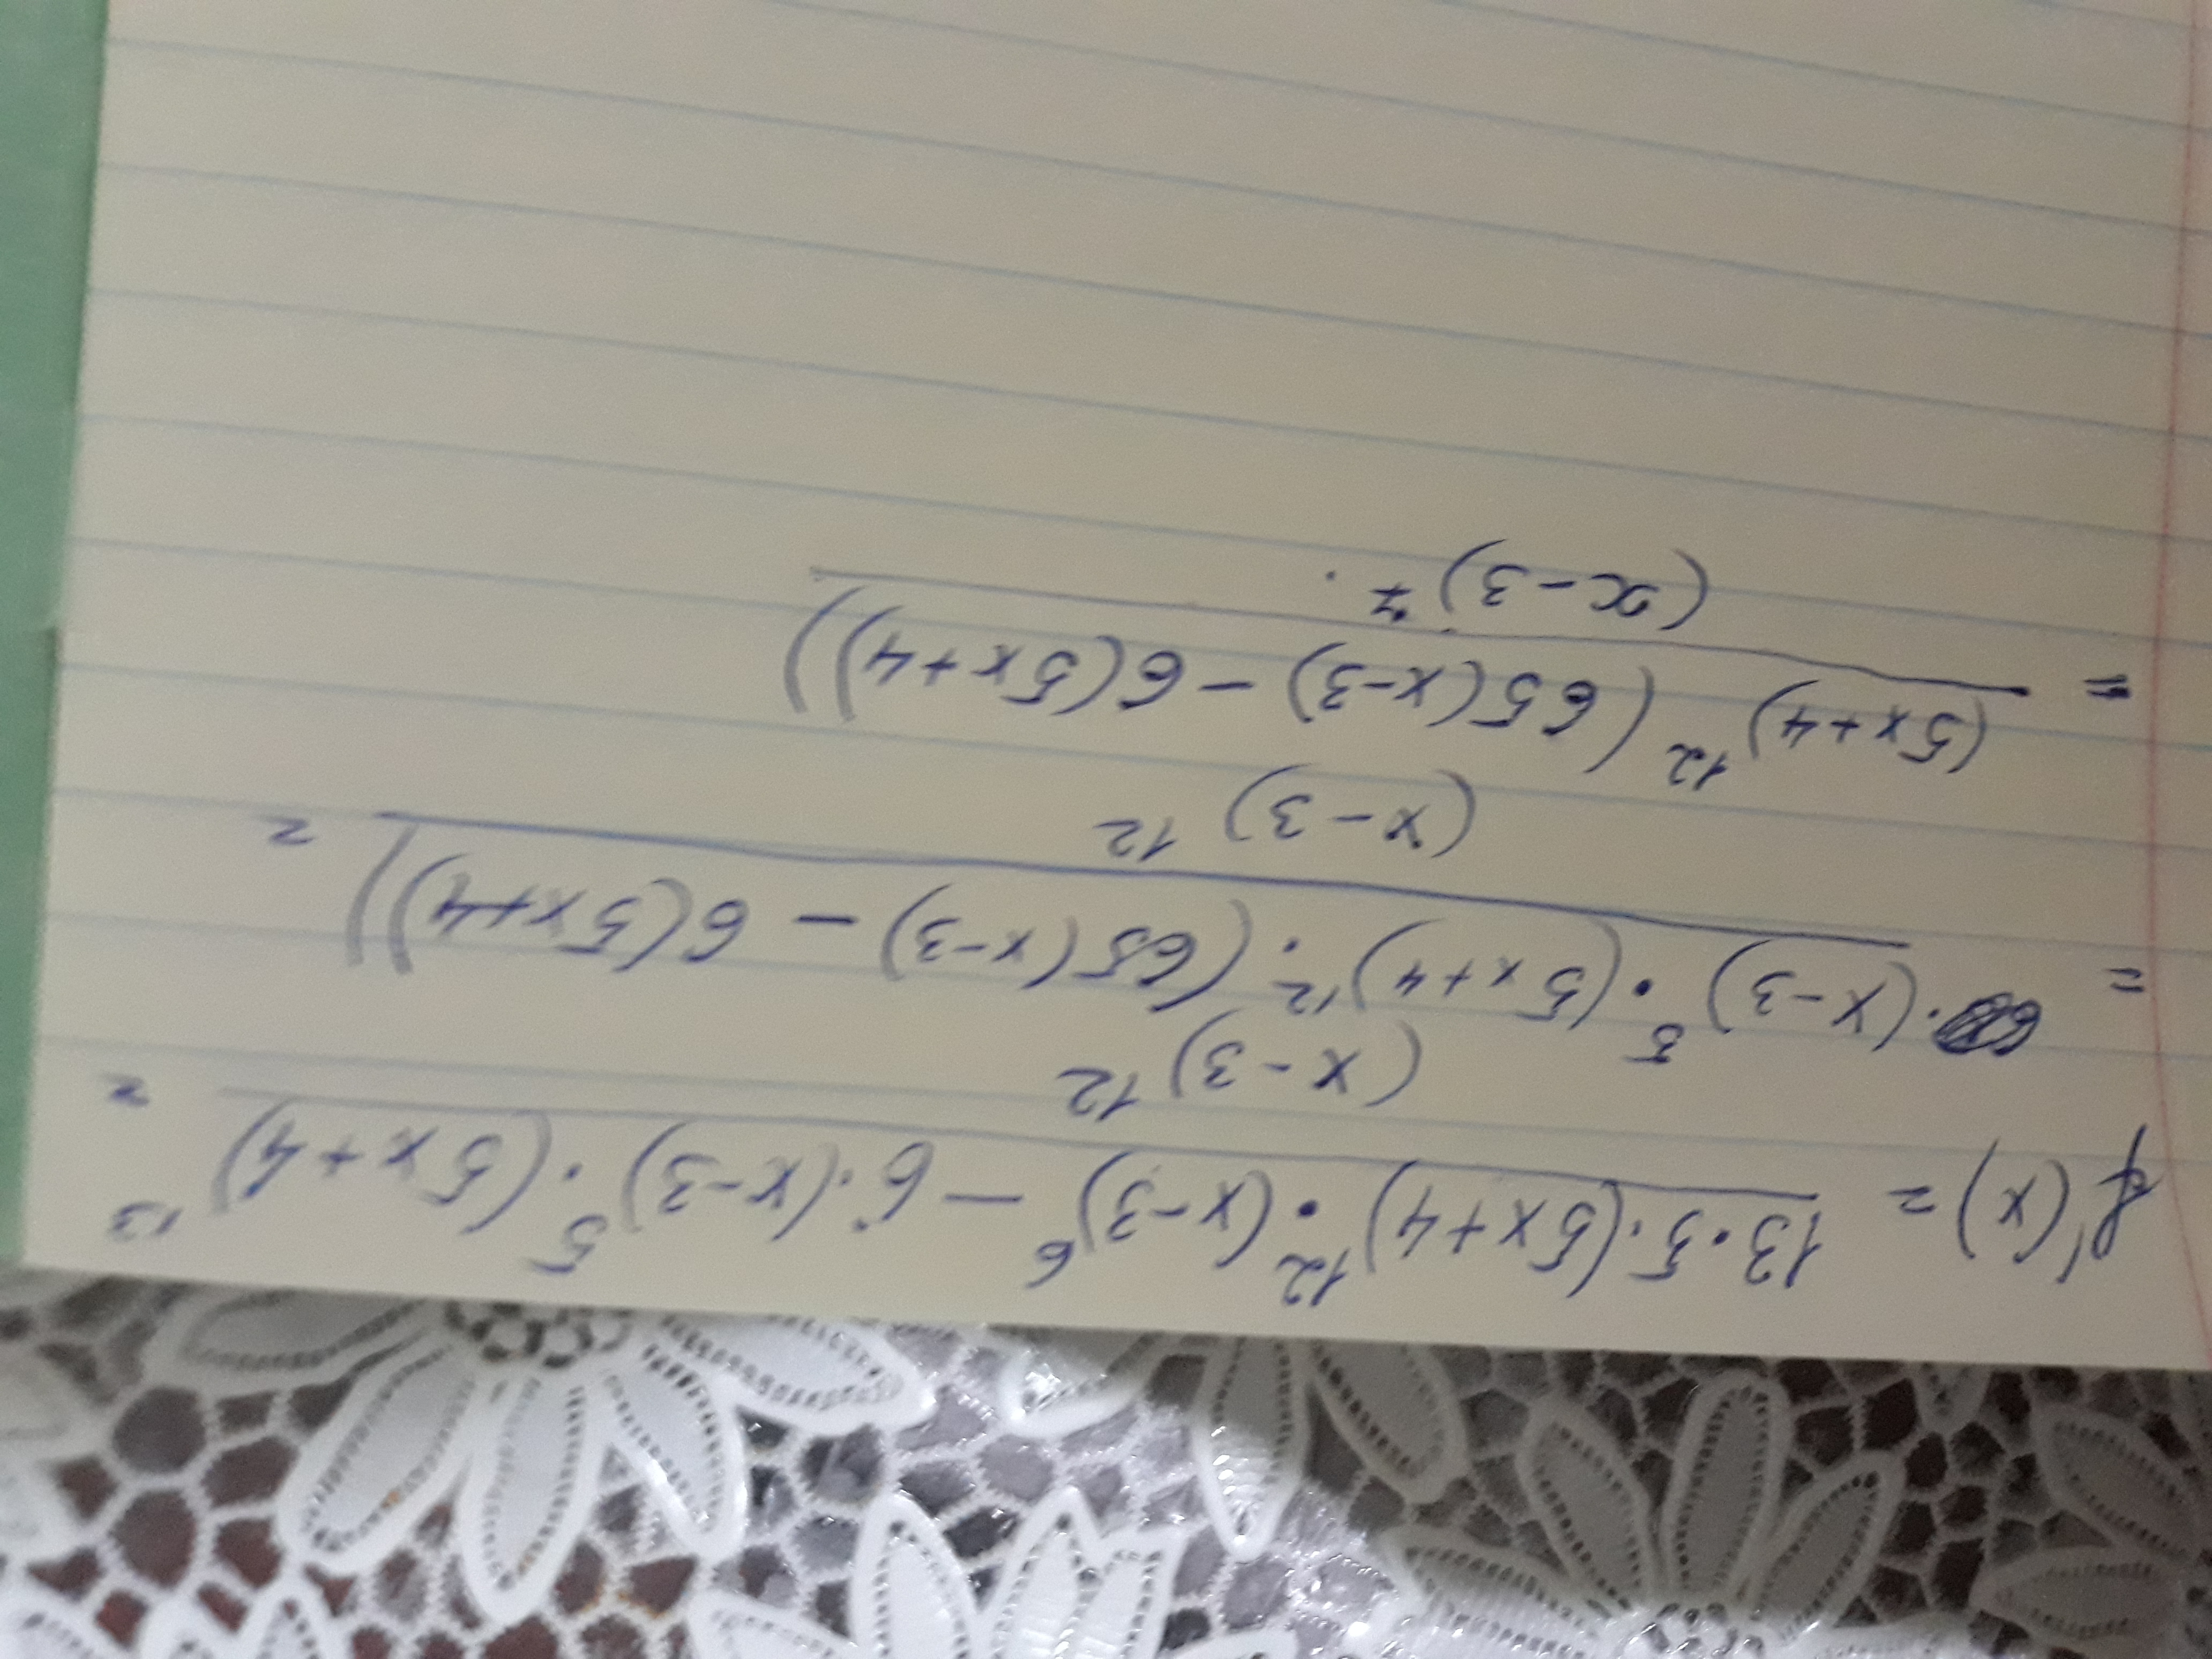 f'(x) = 13·5·(5x+4)¹²·(x-3)⁶ - 6·(x-3)⁵·(5x+4)¹³ =
(x-3)¹²
= ·(x-3)⁵·(5x+4)¹²·(65(x-3) - 6(5x+4)) =
(x-3)¹²
= (5x+4)¹²(65(x-3) - 6(5x+4))
(x-3)⁷.